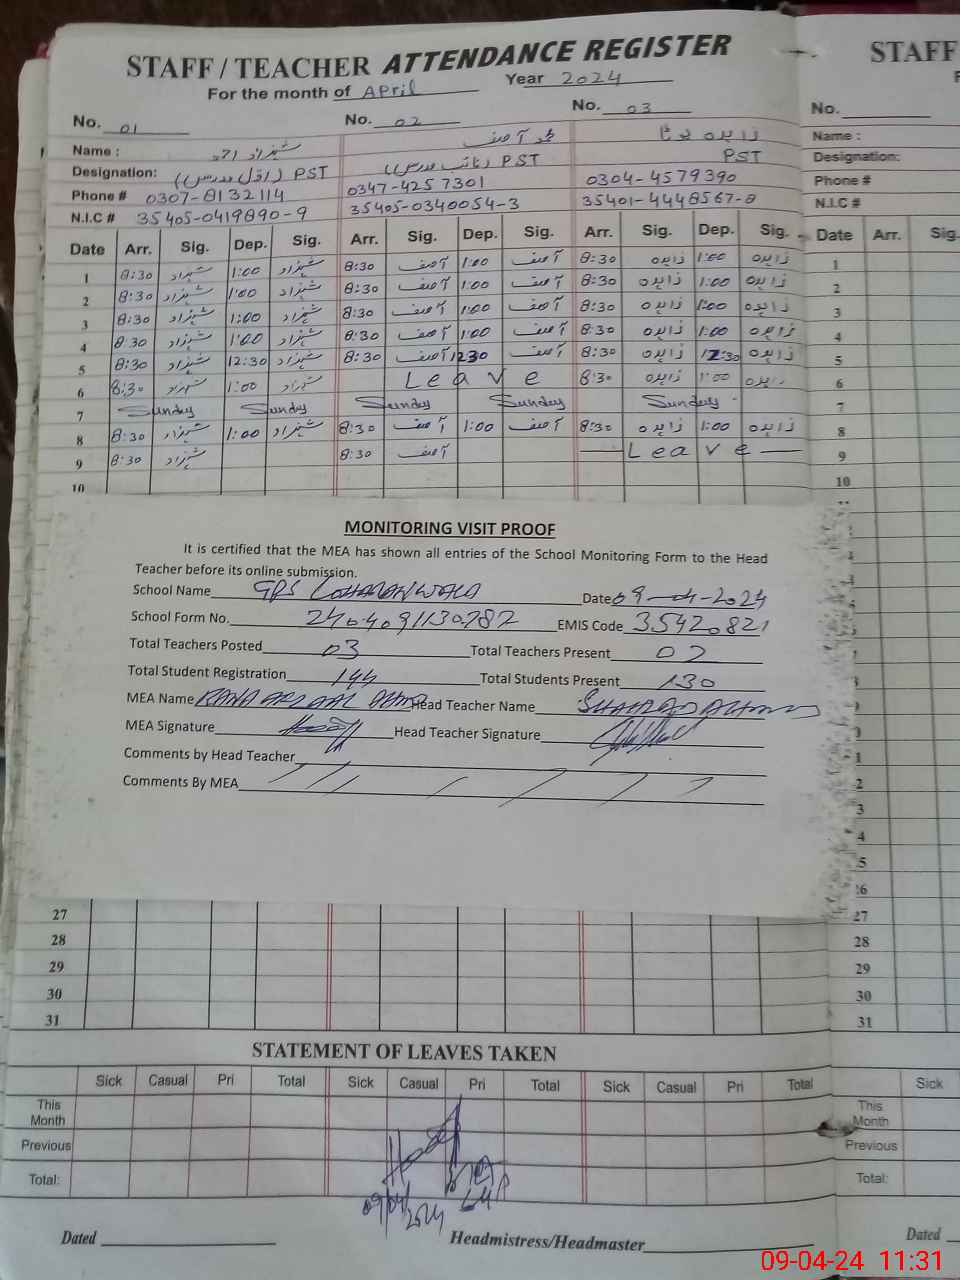 STAFF / TEACHER ATTENDANCE REGISTER
For the month of April Year 2024
No. 01 No. 02 No. 03
Name : شہزاد احمد محمد آصف زاہدہ
Designation: PST (اول مدرس) PST (نائب مدرس) PST
Phone # 0307-8132114 0347-4257301 0304-4579390
N.I.C # 35405-0419890-9 35405-0340054-3 35401-4448567-8
Date Arr. Sig. Dep. Sig. Arr. Sig. Dep. Sig. Arr. Sig. Dep. Sig.
1 8:30 شہزاد 1:00 شہزاد 8:30 آصف 1:00 آصف 8:30 زاہدہ 1:00 زاہدہ
2 8:30 شہزاد 1:00 شہزاد 8:30 آصف 1:00 آصف 8:30 زاہدہ 1:00 زاہدہ
3 8:30 شہزاد 1:00 شہزاد 8:30 آصف 1:00 آصف 8:30 زاہدہ 1:00 زاہدہ
4 8:30 شہزاد 1:00 شہزاد 8:30 آصف 1:00 آصف 8:30 زاہدہ 1:00 زاہدہ
5 8:30 شہزاد 12:30 شہزاد 8:30 آصف 1230 آصف 8:30 زاہدہ 12:30 زاہدہ
6 8:30 شہزاد 1:00 شہزاد Leave 8:30 زاہدہ 1:00 زاہدہ
7 Sunday Sunday Sunday Sunday Sunday
8 8:30 شہزاد 1:00 شہزاد 8:30 آصف 1:00 آصف 8:30 زاہدہ 1:00 زاہدہ
9 8:30 شہزاد 8:30 آصف Leave
10
MONITORING VISIT PROOF
It is certified that the MEA has shown all entries of the School Monitoring Form to the Head
Teacher before its online submission.
School Name GPS Date 09-04-2024
School Form No. 2404091130787 EMIS Code 35420821
Total Teachers Posted 03 Total Teachers Present 02
Total Student Registration 144 Total Students Present 130
MEA Name RANA Head Teacher Name SHAHZAD AHMAD
MEA Signature Head Teacher Signature
Comments by Head Teacher
Comments By MEA
27
28
29
30
31
STATEMENT OF LEAVES TAKEN
Sick Casual Pri Total Sick Casual Pri Total Sick Casual Pri Total
This
Month
Previous
Total:
09/04/2024
Dated Headmistress/Headmaster
STAFF
No.
Name :
Designation:
Phone #
N.I.C #
Date Arr. Sig.
1
2
3
4
5
6
7
8
9
10
27
28
29
30
31
Sick
This
Month
Previous
Total:
Dated
09-04-24 11:31